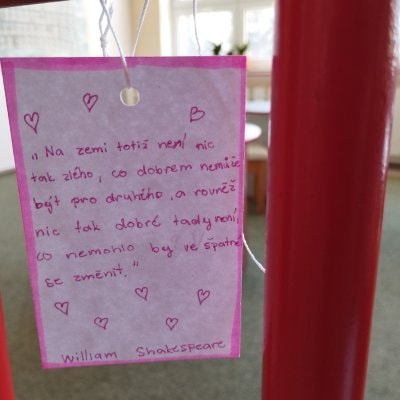 „Na zemi totiž není nic
tak zlého, co dobrem nemůže
být pro druhého, a rovněž
nic tak dobré tady není,
co nemohlo by ve špatné
se změnit."
William Shakespeare